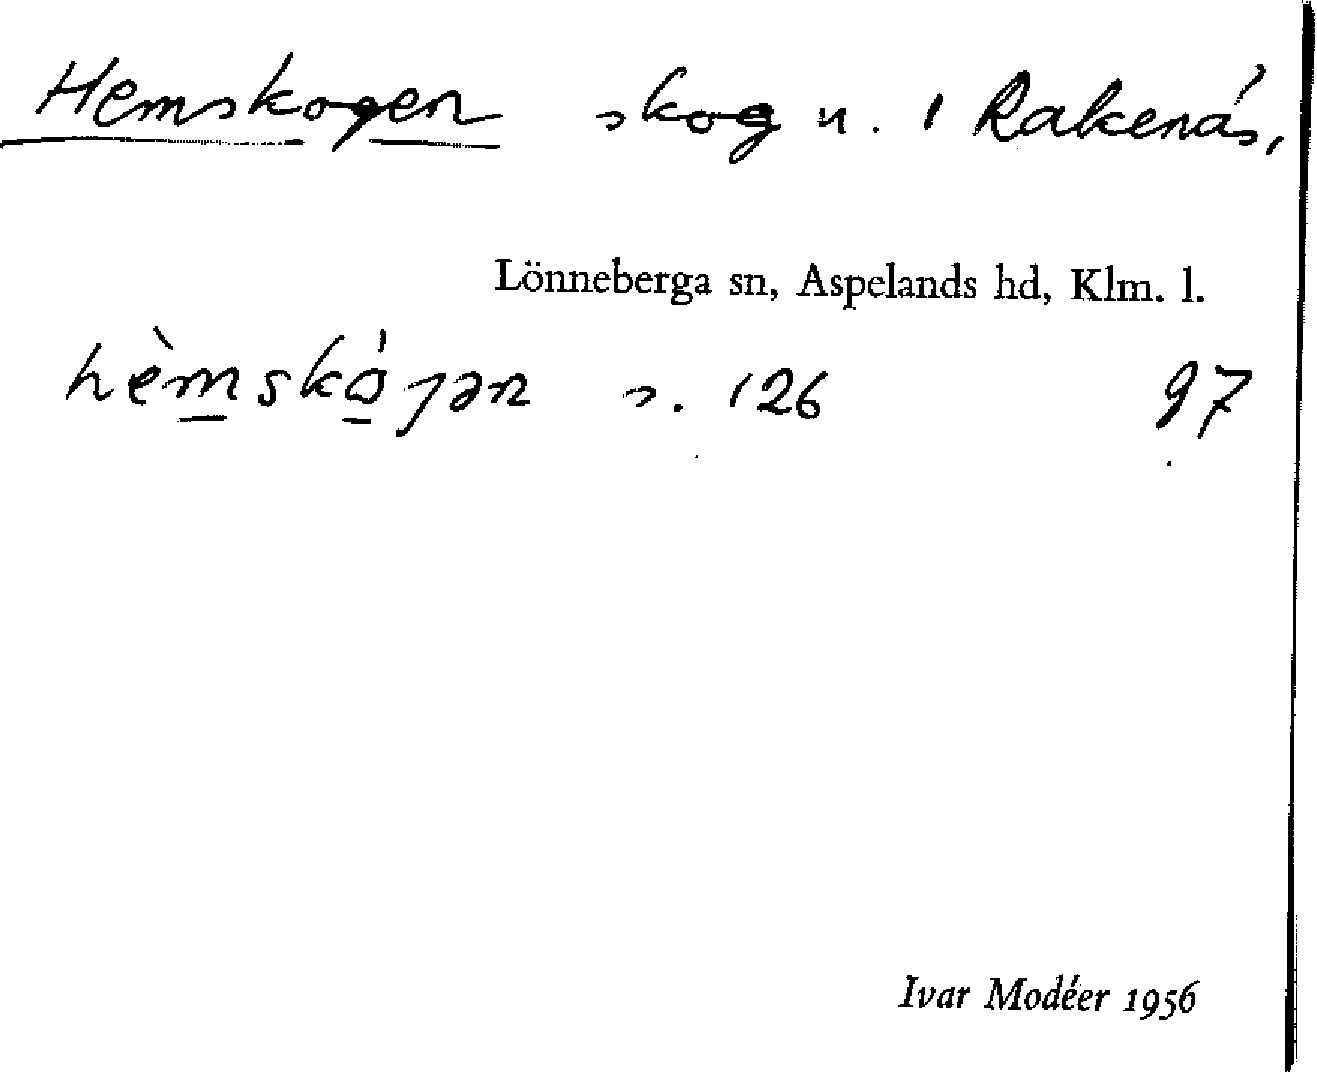 Hemskogen skog n. i Rakenäs,
Lönneberga sn, Aspelands hd, Klm. l.
hèmskójən s. 126 97
Ivar Modéer 1956